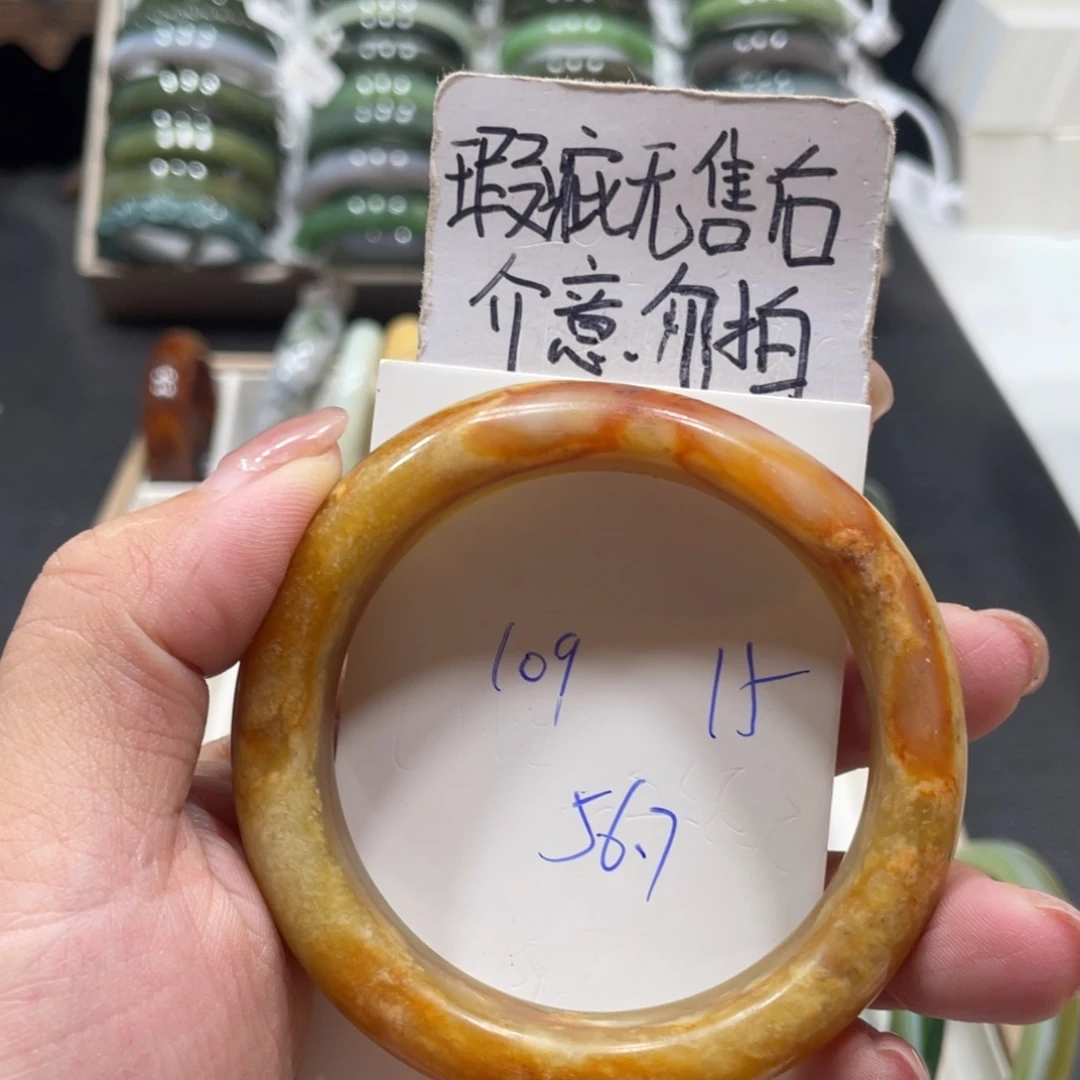 瑕疵无售后
介意.勿拍
109
56.7